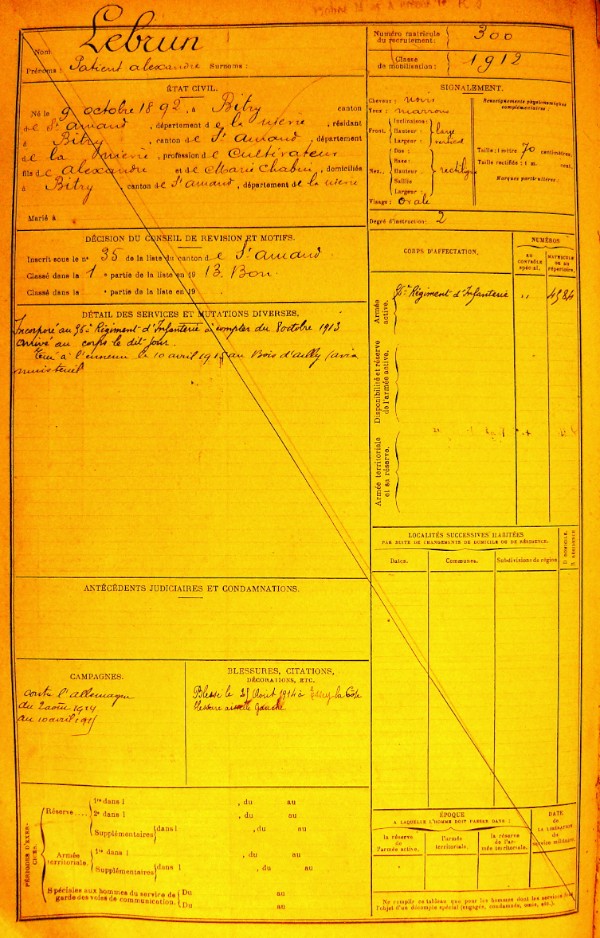 Nom : Lebrun
Prénoms : Patient alexandre Surnoms :
Numéro matricule du recrutement : 300
Classe de mobilisation : 1912
ÉTAT CIVIL.
Né le 9 octobre 1892, à Bitry canton
de St amand, département de la nièvre, résidant
à Bitry, canton de St amand, département
de la nièvre, profession de Cultivateur
fils de alexandre et de Marie Chabin, domiciliés
à Bitry, canton de St amand, département de la nièvre
Marié à
SIGNALEMENT.
Cheveux : noirs
Yeux : marrons
Front. Inclinaison :
Hauteur : large
Largeur : vertical
Nez. Dos :
Base :
Hauteur : rectiligne
Saillie
Largeur :
Visage : Ovale
Renseignements physionomiques complémentaires :
Taille : 1 mètre 70 centimètres.
Taille rectifiée : 1 m. cent.
Marques particulières :
Degré d'instruction : 2
DÉCISION DU CONSEIL DE REVISION ET MOTIFS.
Inscrit sous le n° 35 de la liste du canton de St amand
Classé dans la 1e partie de la liste en 1913. Bon.
Classé dans la e partie de la liste en 19
DÉTAIL DES SERVICES ET MUTATIONS DIVERSES.
Incorporé au 95e Régiment d'Infanterie à compter du 8 octobre 1913
arrivé au corps le dit jour.
Tué à l'ennemi le 10 avril 1915 au Bois d'ailly (avis
ministériel
CORPS D'AFFECTATION.
NUMÉROS
AU contrôle spécial.
MATRICULE ou au répertoire.
Armée active.
95e Régiment d'Infanterie " 4584
Disponibilité et réserve de l'armée active.
Armée territoriale et sa réserve.
LOCALITÉS SUCCESSIVES HABITÉES
PAR SUITE DE CHANGEMENTS DE DOMICILE OU DE RÉSIDENCE.
Dates.
Communes.
Subdivisions de région
D. DOMICILE.
R. RÉSIDENCE
ANTÉCÉDENTS JUDICIAIRES ET CONDAMNATIONS.
CAMPAGNES.
contre l'allemagne
du 2 août 1914
au 10 avril 1915
BLESSURES, CITATIONS,
DÉCORATIONS, ETC.
Blessé le 25 Août 1914 à la Côte
blessure gauche
PÉRIODES D'EXERCICES.
Réserve
1re dans l , du au
2e dans l , du au
Supplémentaires dans l , du au
Armée territoriale.
1re dans l , du au
Supplémentaires dans l , du au
Spéciales aux hommes du service de garde des voies de communication.
Du au
Du au
ÉPOQUE
A LAQUELLE L'HOMME DOIT PASSER DANS :
la réserve de l'armée active.
l'armée territoriale.
la réserve de l'armée territoriale.
DATE
de
LA LIBÉRATION
du service militaire.
Ne remplir ce tableau que pour les hommes dont les services font l'objet d'un décompte spécial (engagés, condamnés, omis, etc.)